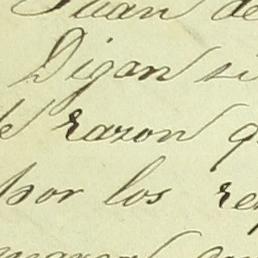 Juan de
Digan si
de razon q
por los re